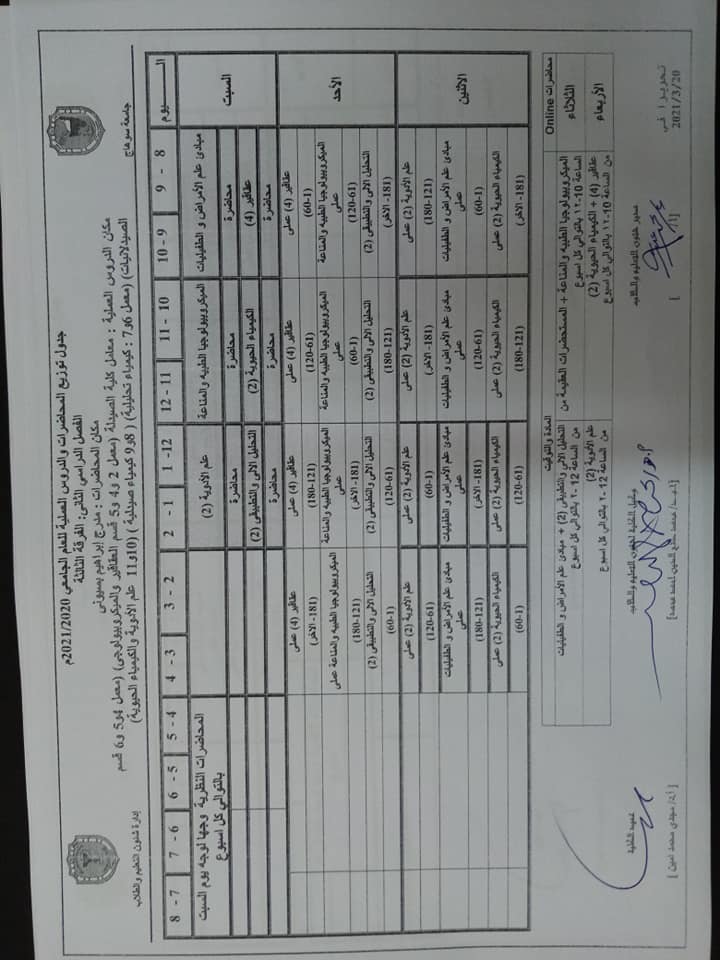 جامعة سوهاج
إدارة شئون التعليم والطلاب
جدول توزيع المحاضرات والدروس العملية للعام الجامعي 2021/2020م
الفصل الدراسي الثاني: الفرقة الثالثة
مكان المحاضرات : مدرج إبراهيم بسيوني
مكان الدروس العملية : معامل كلية الصيدلة (معمل 2 و4 و5 قسم العقاقير والميكروبيولوجى) (معمل 4و5 و6 قسم
الصيدلانيات) (معمل 6و7 : كيمياء تحليلية) ( 8و9 كيمياء صيدلية ) (10و11 علم الأدوية والكيمياء الحيوية)
اليـــــوم 8 - 9 9 - 10 10 - 11 11 - 12 12- 1 1 - 2 2 - 3 3 - 4 4 - 5 5 - 6 6 - 7 7 - 8
السبت
مبادئ علم الأمراض و الطفيليات الميكروبيولوجيا الطبيه والمناعة علم الأدوية (2) المحاضرات النظرية وجها لوجه يوم السبت
بالتوالي كل اسبوع
محاضرة محاضرة محاضرة
عقاقير (4) الكيمياء الحيوية (2) التحليل الالى والتطبيقى (2)
محاضرة محاضرة محاضرة
الأحد
عقاقير (4) عملى عقاقير (4) عملى عقاقير (4) عملى عقاقير (4) عملى
(60-1) (120-61) (180-121) (181- الاخر)
الميكروبيولوجيا الطبيه والمناعة عملى الميكروبيولوجيا الطبيه والمناعة عملى الميكروبيولوجيا الطبيه والمناعة عملى الميكروبيولوجيا الطبيه والمناعة عملى
(120-61) (60-1) (181- الاخر) (180-121)
التحليل الالى والتطبيقى (2) التحليل الالى والتطبيقى (2) التحليل الالى والتطبيقى (2) التحليل الالى والتطبيقى (2)
(181- الاخر) (180-121) (120-61) (60-1)
الاثنين
علم الأدوية (2) عملى علم الأدوية (2) عملى علم الأدوية (2) عملى علم الأدوية (2) عملى
(180-121) (181- الاخر) (60-1) (120-61)
مبادئ علم الأمراض و الطفيليات عملى مبادئ علم الأمراض و الطفيليات عملى مبادئ علم الأمراض و الطفيليات عملى مبادئ علم الأمراض و الطفيليات عملى
(60-1) (120-61) (181- الاخر) (180-121)
الكيمياء الحيوية (2) عملى الكيمياء الحيوية (2) عملى الكيمياء الحيوية (2) عملى الكيمياء الحيوية (2) عملى
(181- الاخر) (180-121) (120-61) (60-1)
محاضرات Online المادة والتوقيت
الثلاثاء الميكروبيولوجيا الطبيه والمناعة + المستحضرات العقيمة من الساعة 10-12 بالتوالي كل اسبوع التحليل الالى والتطبيقى (2) + مبادئ علم الأمراض و الطفيليات من الساعة 12-2 بالتوالي كل اسبوع
الأربعاء عقاقير (4) + الكيمياء الحيوية (2) من الساعة 10-12 بالتوالي كل اسبوع علم الأدوية (2) من الساعة 12-2 بالتوالي كل اسبوع
تحريرا في
2021/3/20
مدير شئون التعليم والطلاب
وكيل الكلية لشئون التعليم والطلاب
عميد الكلية